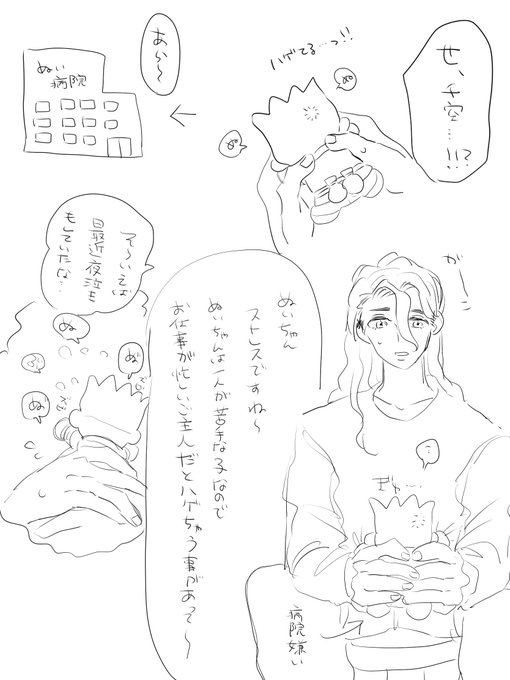 せ、千空…!!?
ハゲてる…っ!!
ぬ
ぬ
あら〜
ぬい
病院
がーん
ぬいちゃん
ストレスですね〜
ぬいちゃんは一人が苦手な子なので
お仕事が忙しいご主人だとハゲちゃう事があって〜
そーいえば
最近夜泣も
もしていたな…
ぬ
ぬ
ぬ
ぬ
…
ぎゅ…
病院嫌い